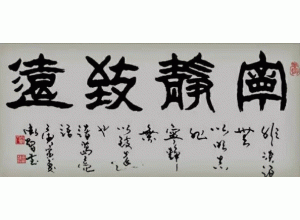 寧靜致遠
非淡泊
無
以明志
非
寧靜
無
以致遠
也
諸葛亮
語